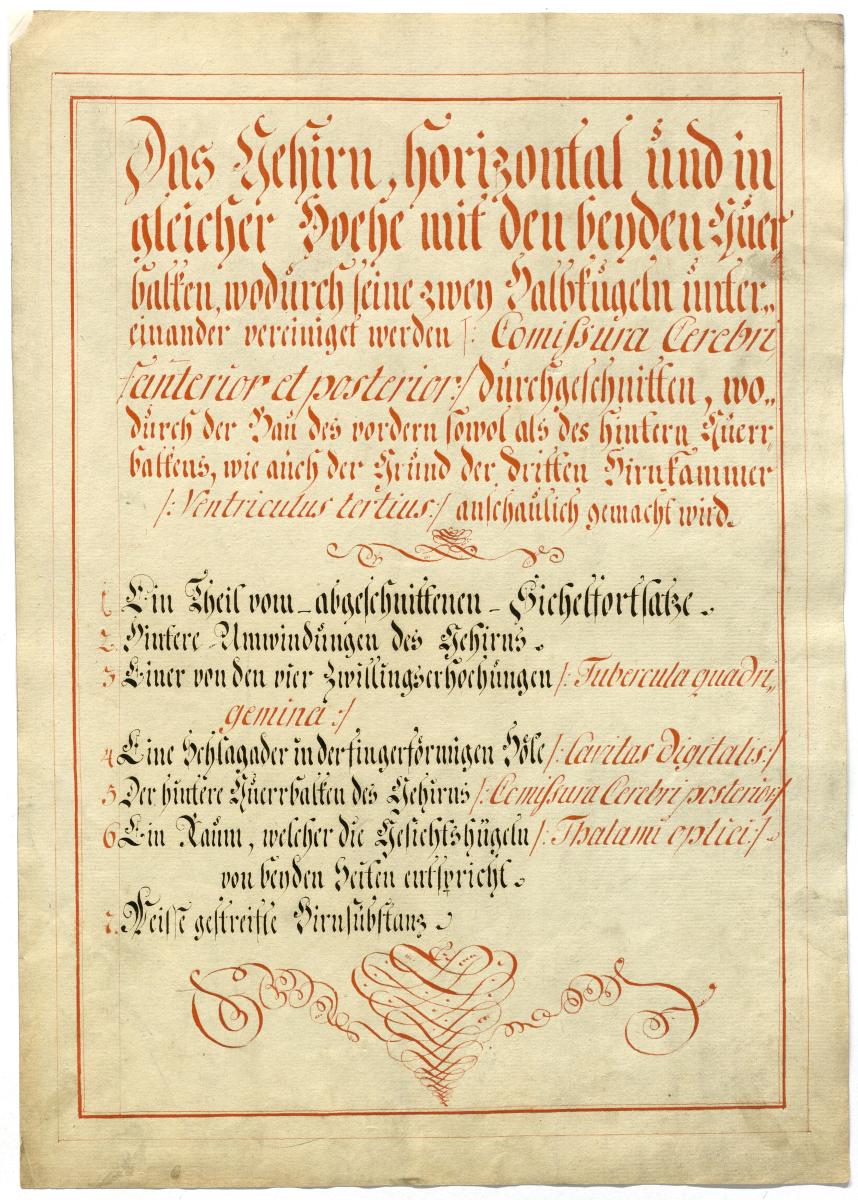 Das Gehirn, horizontal und in
gleicher Hoehe mit den beyden Quer
balken, wodurch seine zwey Halbkugeln unter„
einander vereiniget werden /: Comissura Cerebri
anterior et posterior :/ durchgeschnitten, wo„
durch der Bau des vordern sowol als des hintern Querr„
balkens, wie auch der Grund der dritten Hirnkammer
/: Ventriculus tertius :/ anschaulich gemacht wird.
1 Ein Theil vom abgeschnittenen Sichelfortsatze.
2. Hintere Umwindungen des Gehirns.
3 Einer von den vier Zwillingserhoehungen /: Tubercula quadri„
gemina :/
4 Eine Schlagader in der fingerförmigen Höle /: Cavitas Digitalis :/
5 Der hintere Querrbalken des Gehirns /: Comissura Cerebri posterior :/
6 Ein Raum, welcher die Gesichtshügeln /: Thalami optici :/
von beyden Seiten entspricht.
7. Weisse gestreifte Hirnsubstanz.